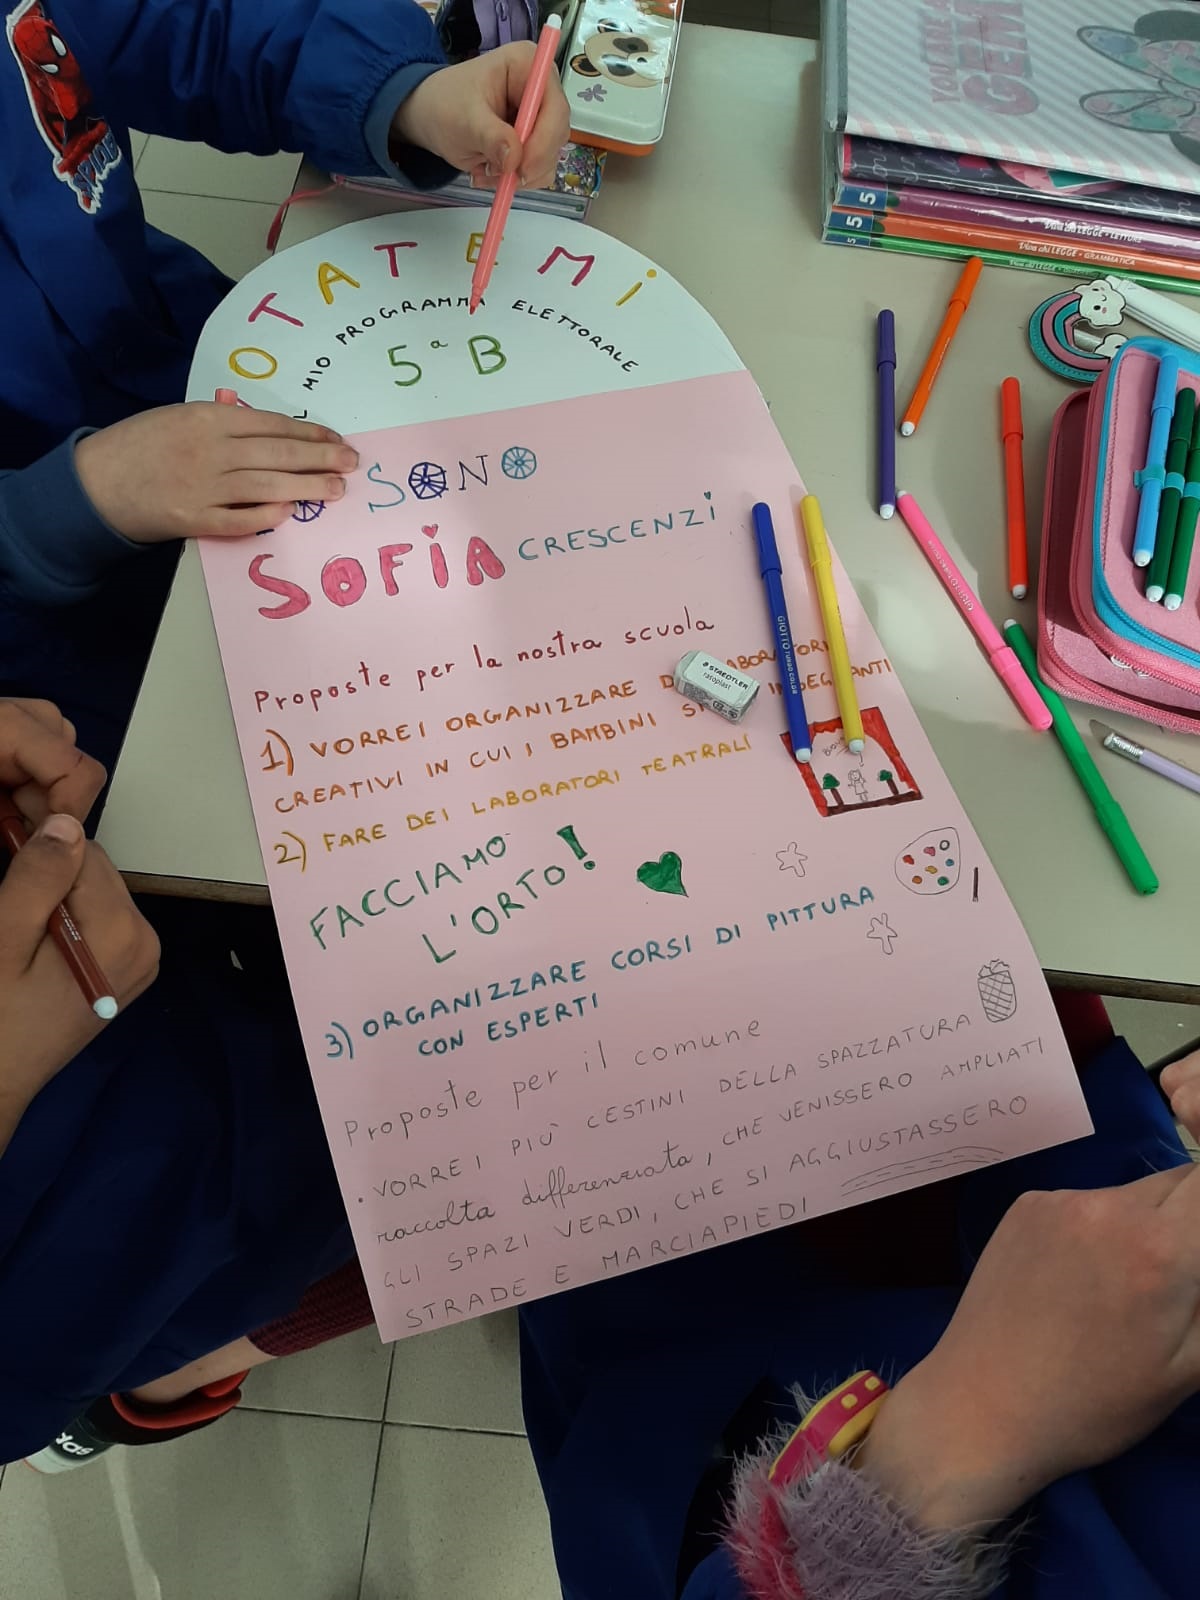 YOU ARE A
GEM
5
5
5
Viva chi LEGGE • LETTURE
Viva chi LEGGE • GRAMMATICA
Viva chi LEGGE
OTATEMi
L MIO PROGRAMMA ELETTORALE
5ª B
SONO
SOFiA CRESCENZi
Proposte per la nostra scuola
1) VORREI ORGANIZZARE D ABORATORI
CREATIVI IN CUI I BAMBINI SI INSEGNANTI
2) FARE DEI LABORATORI TEATRALI
FACCIAMO
L'ORTO!
3) ORGANIZZARE CORSI DI PITTURA
CON ESPERTI
Proposte per il comune
• VORREI PIÙ CESTINI DELLA SPAZZATURA
raccolta differenziata, CHE VENISSERO AMPLIATI
GLI SPAZI VERDI, CHE SI AGGIUSTASSERO
STRADE E MARCIAPIEDI
STAEDTLER
rasoplast
GIOTTO TURBO COLOR